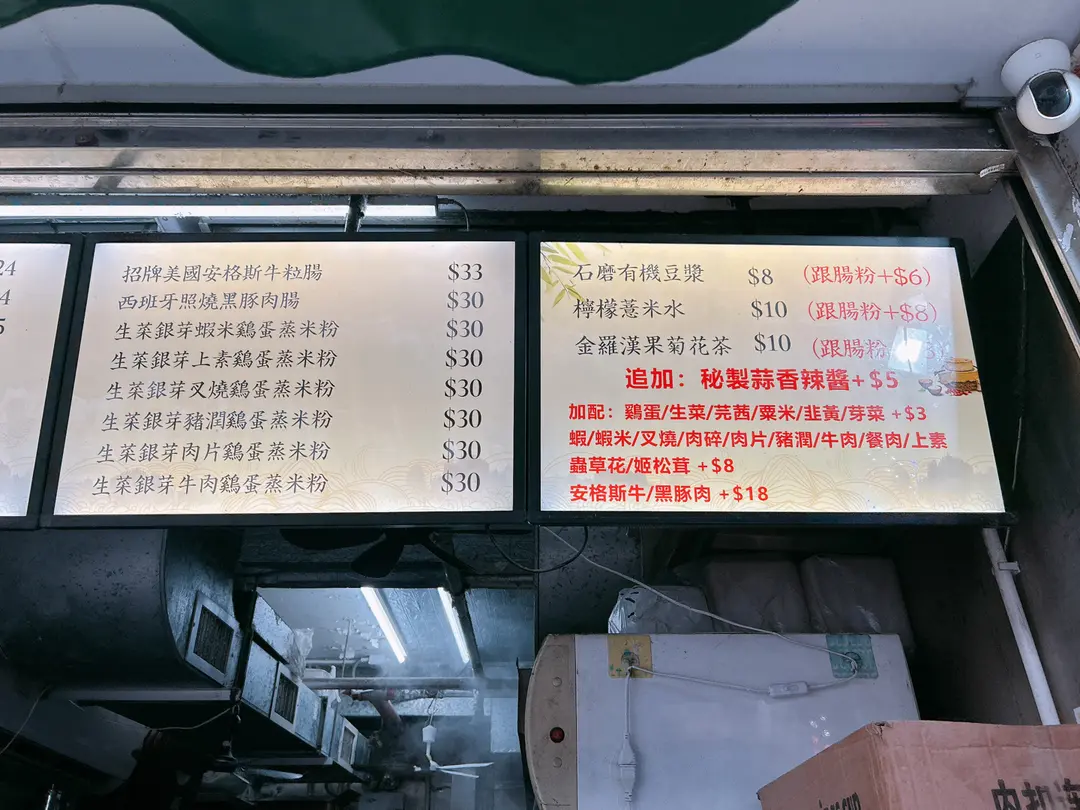 24
4
5
招牌美國安格斯牛粒腸 $33
西班牙照燒黑豚肉腸 $30
生菜銀芽蝦米鷄蛋蒸米粉 $30
生菜銀芽上素鷄蛋蒸米粉 $30
生菜銀芽叉燒鷄蛋蒸米粉 $30
生菜銀芽豬潤鷄蛋蒸米粉 $30
生菜銀芽肉片鷄蛋蒸米粉 $30
生菜銀芽牛肉鷄蛋蒸米粉 $30
石磨有機豆漿 $8 (跟腸粉+$6)
檸檬薏米水 $10 (跟腸粉+$8)
金羅漢果菊花茶 $10 (跟腸粉
追加：秘製蒜香辣醬+$5
加配：鷄蛋/生菜/芫茜/粟米/韭黃/芽菜 +$3
蝦/蝦米/叉燒/肉碎/肉片/豬潤/牛肉/餐肉/上素
蟲草花/姬松茸 +$8
安格斯牛/黑豚肉 +$18